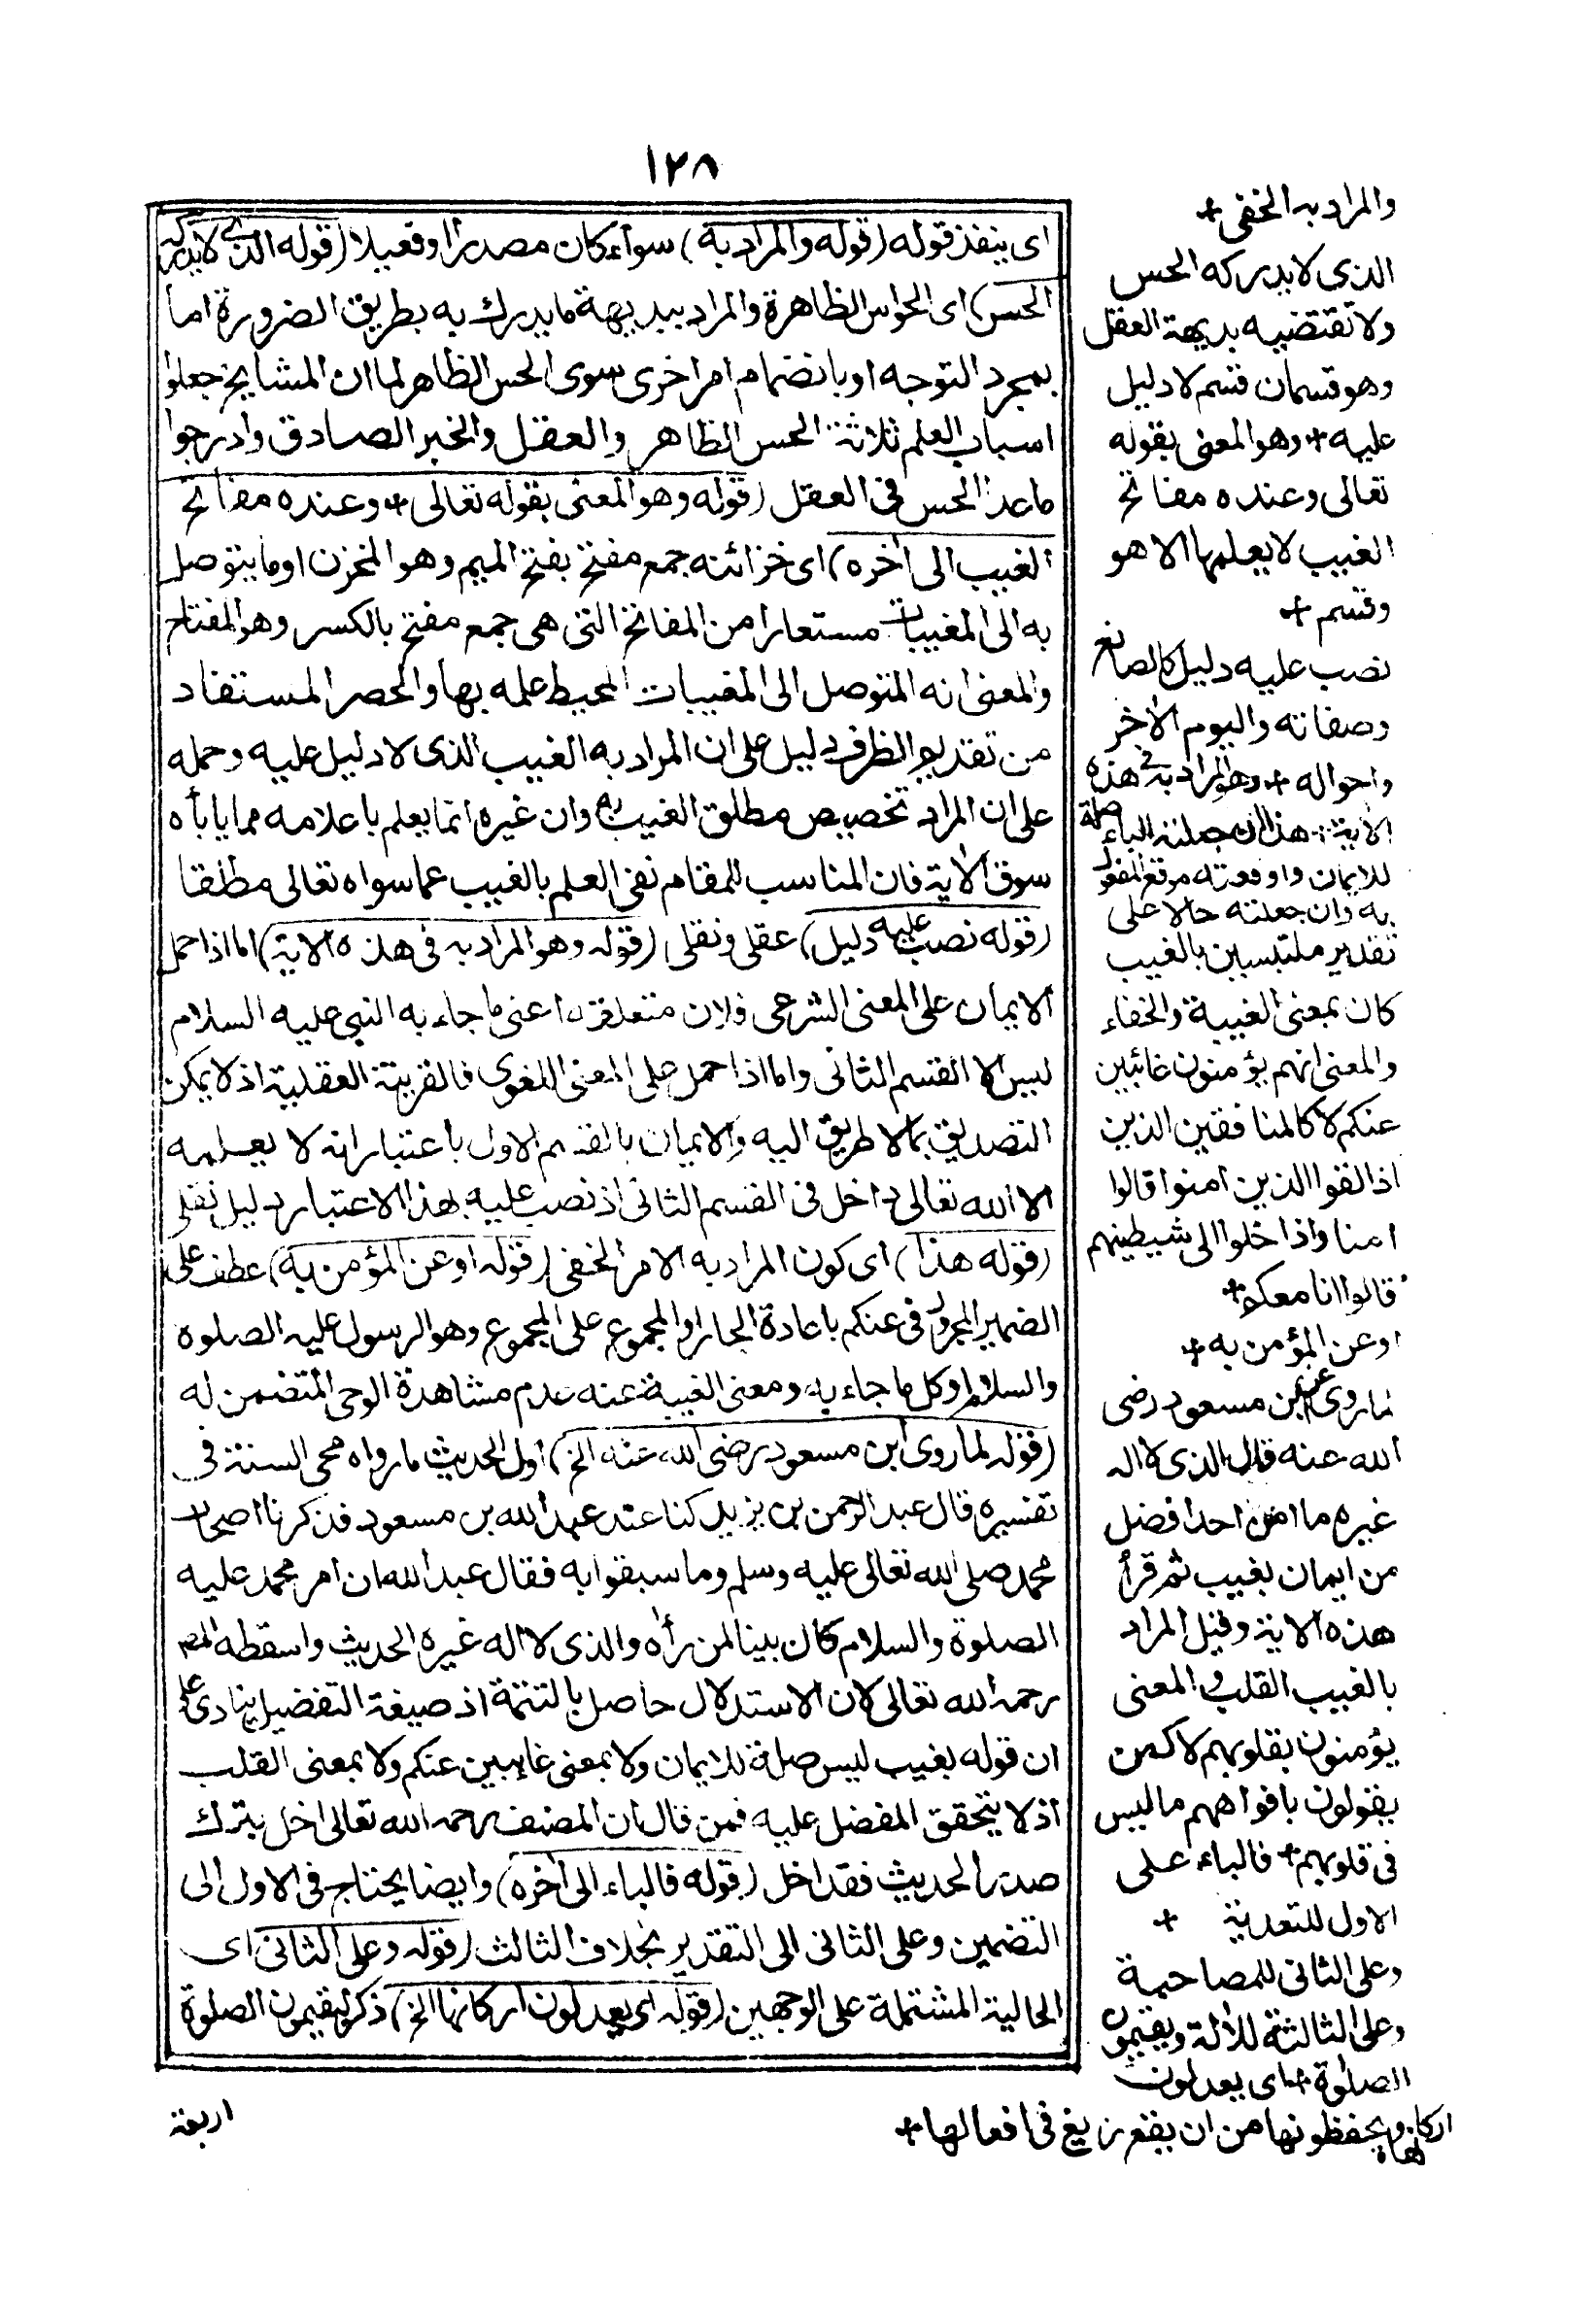 ١٢٨
اى ينفذ قوله (قوله والمراد به) سواء كان مصدرا او فعيلا (قوله الذى لا يدركه
الحس) اى الحواس الظاهرة والمراد ببديهة ما يدرك به بطريق الضرورة اما
بمجرد التوجه او بانضمام امر اخرى سوى الحس الظاهر لما ان المشايخ جعلوا
اسباب العلم ثلاثة الحس الظاهر والعقل والخبر الصادق وادرجوا
ما عدا الحس فى العقل (قوله وهو المعنى بقوله تعالى + وعنده مفاتح
الغيب الى اخره) اى خزائنه جمع مفتح بفتح الميم وهو المخزن او ما يتوصل
به الى المغيبات مستعارا من المفاتح التى هى جمع مفتح بالكسر وهو المفتاح
والمعنى انه المتوصل الى المغيبات المحيط علمه بها والحصر المستفاد
من تقديم الظرف دليل على ان المراد به الغيب الذى لا دليل عليه وحمله
على ان المراد تخصيص مطلق الغيب به وان غيره انما يعلم باعلامه مما يأباه
سوق الاية فان المناسب للمقام نفى العلم بالغيب عما سواه تعالى مطلقا
(قوله نصب عليه دليل) عقلى ونقلى (قوله وهو المراد به فى هذه الاية) اما اذا حمل
الايمان على المعنى الشرعى فلان متعلقه اعنى ما جاء به النبى عليه السلام
ليس الا القسم الثانى واما اذا حمل على المعنى اللغوى فالقرينة العقلية اذ لا يمكن
التصديق بما لا طريق اليه والايمان بالقسم الاول باعتبار انه لا يعلمه
الا الله تعالى داخل فى القسم الثانى اذ نصب عليه بهذا الاعتبار دليل نقلى
(قوله هذا) اى كون المراد به الامر الخفى (قوله او عن المؤمن به) عطف على
الضمير المجرور فى عنكم باعادة الجار او المجموع على المجموع وهو الرسول عليه الصلوة
والسلام او كل ما جاء به ومعنى الغيبة عنه عدم مشاهدة الوحى المتضمن له
(قوله لما روى ابن مسعود رضى الله عنه الخ) اول الحديث ما رواه محى السنة فى
تفسيره قال عبد الرحمن بن يزيد كنا عند عبد الله بن مسعود فذكرنا اصحاب
محمد صلى الله تعالى عليه وسلم وما سبقوا به فقال عبد الله ان امر محمد عليه
الصلوة والسلام كان بينا لمن رأه والذى لا اله غيره الحديث واسقطه المص
رحمه الله تعالى لان الاستدلال حاصل بالتتمة اذ صيغة التفضيل ينادى على
ان قوله بغيب ليس صلة للايمان ولا بمعنى غائبين عنكم ولا بمعنى القلب
اذ لا يتحقق المفضل عليه فمن قال ان المصنف رحمه الله تعالى اخل بترك
صدر الحديث فقد اخل (قوله فالباء الى اخره) وايضا يحتاج فى الاول الى
التضمين وعلى الثانى الى التقدير بخلاف الثالث (قوله وعلى الثانى اى
الحالية المشتملة على الوجهين (قوله اى يعدلون اركانها الخ) ذكر ليقيمون الصلوة
اربعة
والمراد به الخفى +
الذى لا يدركه الحس
ولا تقتضيه بديهة العقل
وهو قسمان قسم لا دليل
عليه + وهو المعنى بقوله
تعالى وعنده مفاتح
الغيب لا يعلمها الا هو
وقسم +
نصب عليه دليل كالصانع
وصفاته واليوم الاخر
واحواله + وهو المراد به فى هذه
الاية هذا ان جعلته الباء صلة
للايمان واوقعته موقع المفعول
به وان جعلته حالا على
تقدير ملتبسين بالغيب
كان بمعنى الغيبة والخفاء
والمعنى انهم يؤمنون غائبين
عنكم لا كالمنافقين الذين
اذا لقوا الذين امنوا قالوا
امنا واذا خلوا الى شيطينهم
قالوا انا معكم +
او عن المؤمن به +
لما روى عن ابن مسعود رضى
الله عنه قال والذى لا اله
غيره ما امن احد افضل
من ايمان بغيب ثم قرأ
هذه الاية وقيل المراد
بالغيب القلب والمعنى
يؤمنون بقلوبهم لا كمن
يقولون بافواههم ما ليس
فى قلوبهم + فالباء على
الاول للتعدية +
وعلى الثانى للمصاحبة
وعلى الثالثة للألة ويقيمون
الصلوة + اى يعدلون
اركانها ويحفظونها من ان يقع زيغ فى افعالها +